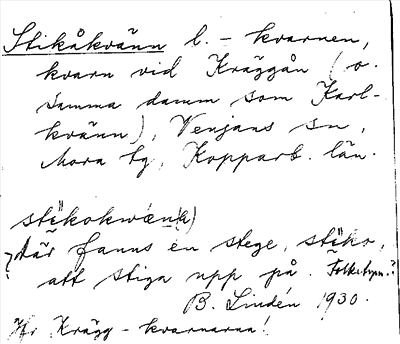 Stikåkvänn b. - kvarnen,
kvarn vid Kräggån (o.
samma damm som Karl-
kvänn), Venjans sn,
Mora tg, Kopparb. län.
där fanns en stege, steko,
att stiga upp på. Folketym.?
B. Lindén 1930.
Jfr Krägg-kvarnarna!